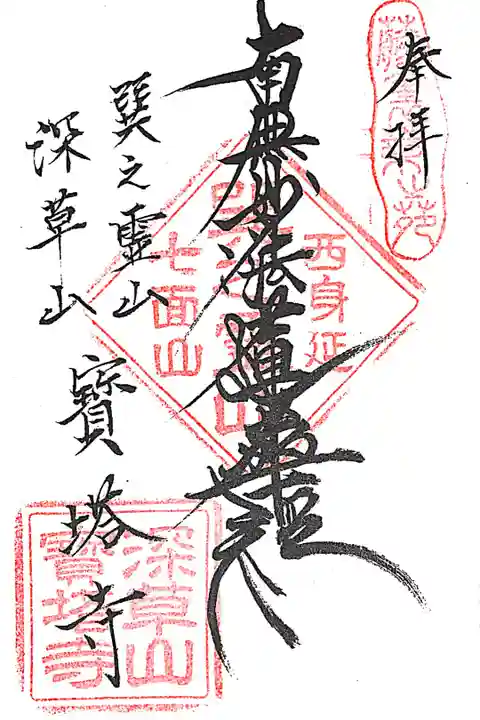 奉拝
南無妙法蓮華経
西身延
七面山
巽之靈山
深草山
寶塔寺
深草山
寶塔寺